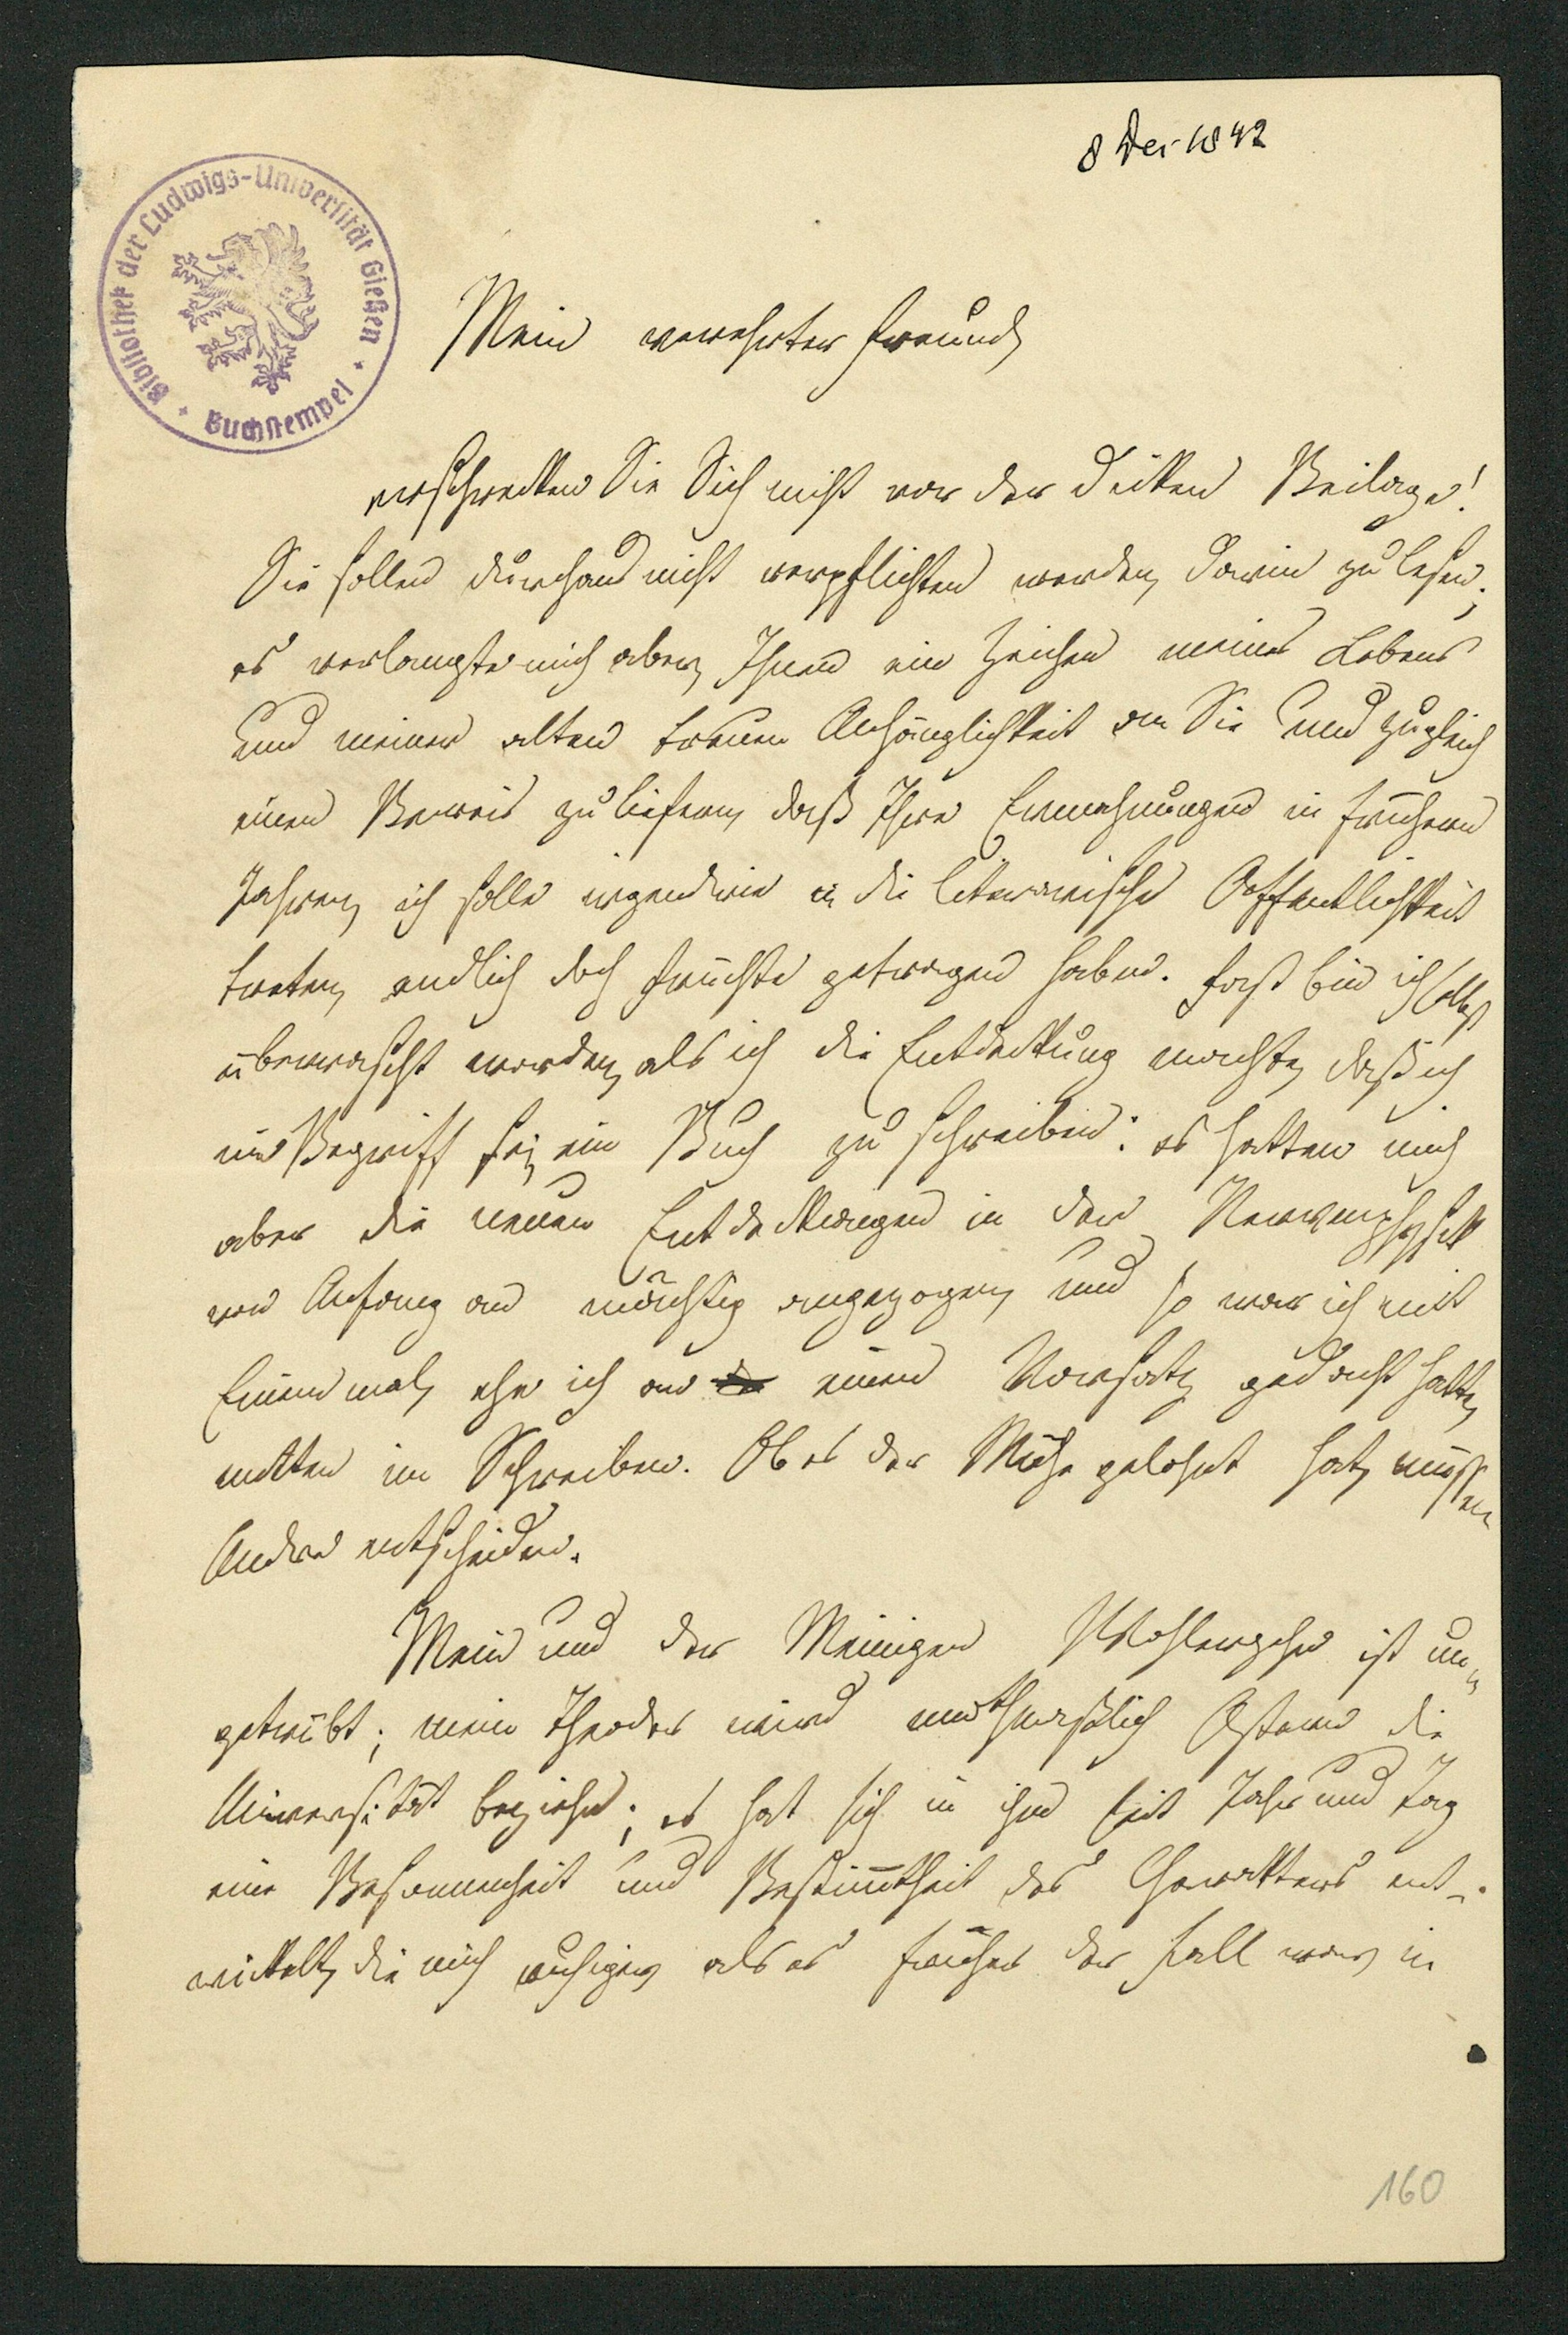 8 Dec 1842
Bibliothek der Ludwigs-Universität Gießen
Buchstempel
Mein verehrter Freund,
erschrecken Sie Sich nicht vor der dicken Beilage!
Sie sollen durchaus nicht verpflichtet werden, darin zu lesen;
es verlangte mich aber, Ihnen ein Zeichen meines Lebens
und meiner alten treuen Anhänglichkeit an Sie und zugleich
einen Beweis zu liefern, daß Ihre Ermahnungen in frühern
Jahren, ich solle irgendwie in die literarische Oeffentlichkeit
treten, endlich doch Früchte getragen haben. Fast bin ich selbst
überrascht worden, als ich die Entdeckung machte, daß ich
im Begriff sei, ein Buch zu schreiben: es hatten mich
aber die neuen Entdeckungen in der Nervenphysik
von Anfang an mächtig angezogen, und so war ich mit
Einem mal, ehe ich an einen Vorsatz gedacht hatte,
mitten im Schreiben. Ob es der Mühe gelohnt hat, müssen
Andre entscheiden.
Mein und der Meinigen Wohlergehn ist un-
getrübt; mein Theodor wird muthmaßlich Ostern die
Universität beziehn; es hat sich in ihm seit Jahr und Tag
eine Besonnenheit und Bestimmtheit des Charakters ent-
wickelt, die mich ruhiger, als es früher der Fall war, in
160